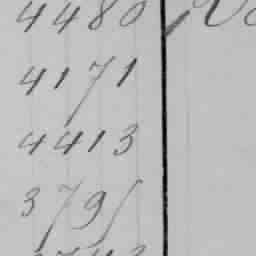 4480
4171
4413
3795